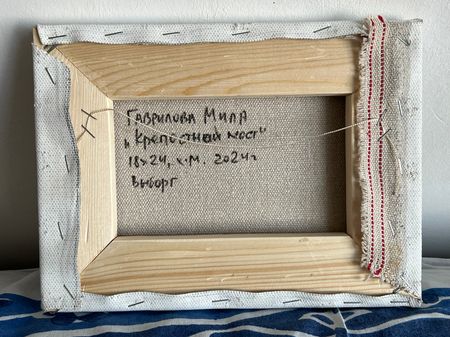 Гаврилова Мила
„Крепостной мост"
18х24, х.м. 2024г
Выборг